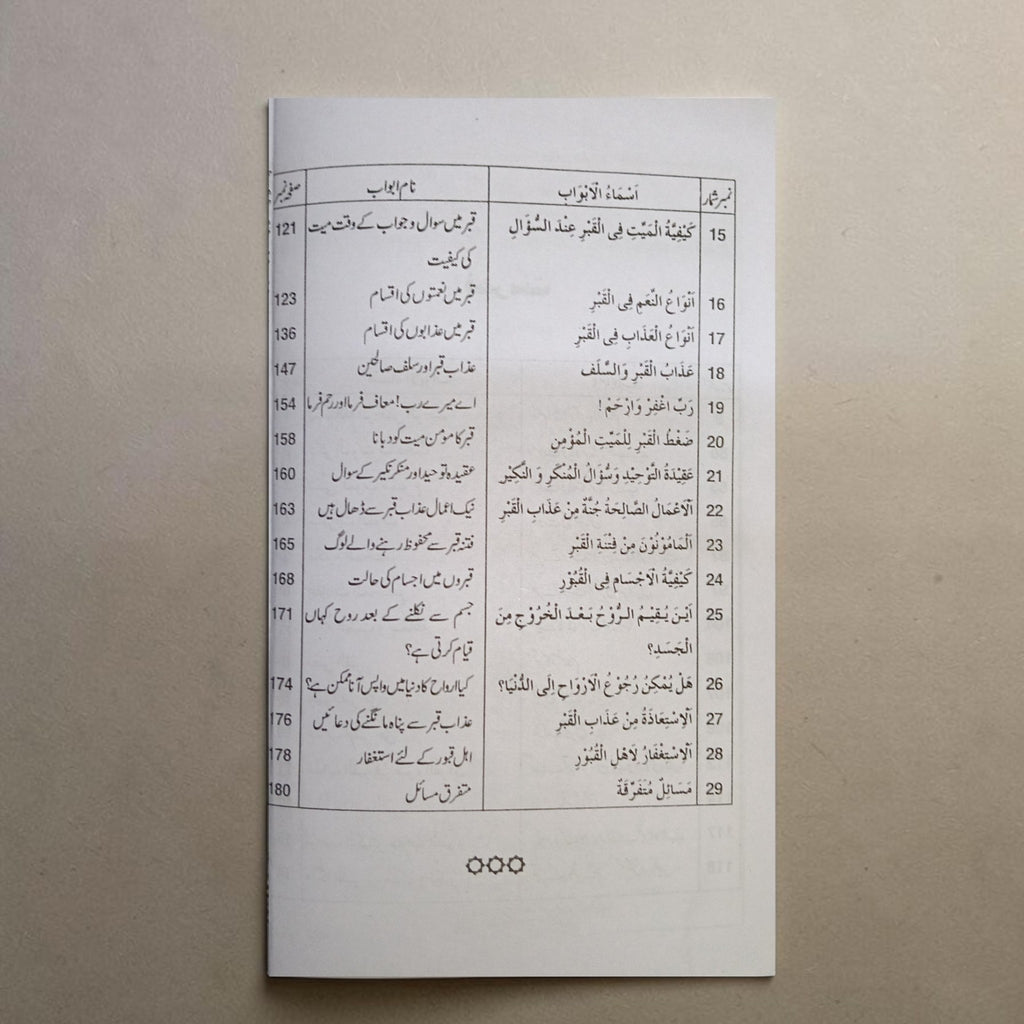 نمبر شمار اَسْمَاءُ الْاَبْوَابِ نام ابواب صفحہ نمبر
15 كَيْفِيَّةُ الْمَيِّتِ فِى الْقَبْرِ عِنْدَ السُّؤَالِ قبر میں سوال و جواب کے وقت میت 121
کی کیفیت
16 اَنْوَاعُ النِّعَمِ فِى الْقَبْرِ قبر میں نعمتوں کی اقسام 123
17 اَنْوَاعُ الْعَذَابِ فِى الْقَبْرِ قبر میں عذابوں کی اقسام 136
18 عَذَابُ الْقَبْرِ وَالسَّلَف عذاب قبر اور سلف صالحین 147
19 رَبِّ اغْفِرْ وَارْحَمْ! اے میرے رب! معاف فرما اور رحم فرما 154
20 ضَغْطُ الْقَبْرِ لِلْمَيِّتِ الْمُؤْمِنِ قبر کا مومن میت کو دبانا 158
21 عَقِيْدَةُ التَّوْحِيْدِ وَسُؤَالُ الْمُنْكَرِ وَ النَّكِيْرِ عقیدہ توحید اور منکر نکیر کے سوال 160
22 اَلْاَعْمَالُ الصَّالِحَةُ جُنَّةٌ مِنْ عَذَابِ الْقَبْرِ نیک اعمال عذاب قبر سے ڈھال ہیں 163
23 اَلْمَامُوْنُوْنَ مِنْ فِتْنَةِ الْقَبْرِ فتنہ قبر سے محفوظ رہنے والے لوگ 165
24 كَيْفِيَّةُ الْاَجْسَامِ فِى الْقُبُوْرِ قبروں میں اجسام کی حالت 168
25 اَيْنَ يُقِيْمُ الرُّوْحُ بَعْدَ الْخُرُوْجِ مِنَ جسم سے نکلنے کے بعد روح کہاں 171
الْجَسَدِ؟ قیام کرتی ہے؟
26 هَلْ يُمْكِنُ رُجُوْعُ الْاَرْوَاحِ اِلَى الدُّنْيَا؟ کیا ارواح کا دنیا میں واپس آنا ممکن ہے؟ 174
27 اَلْاِسْتِعَاذَةُ مِنْ عَذَابِ الْقَبْرِ عذاب قبر سے پناہ مانگنے کی دعائیں 176
28 اَلْاِسْتِغْفَارُ لِاَهْلِ الْقُبُوْرِ اہل قبور کے لئے استغفار 178
29 مَسَائِلُ مُتَفَرِّقَةٌ متفرق مسائل 180